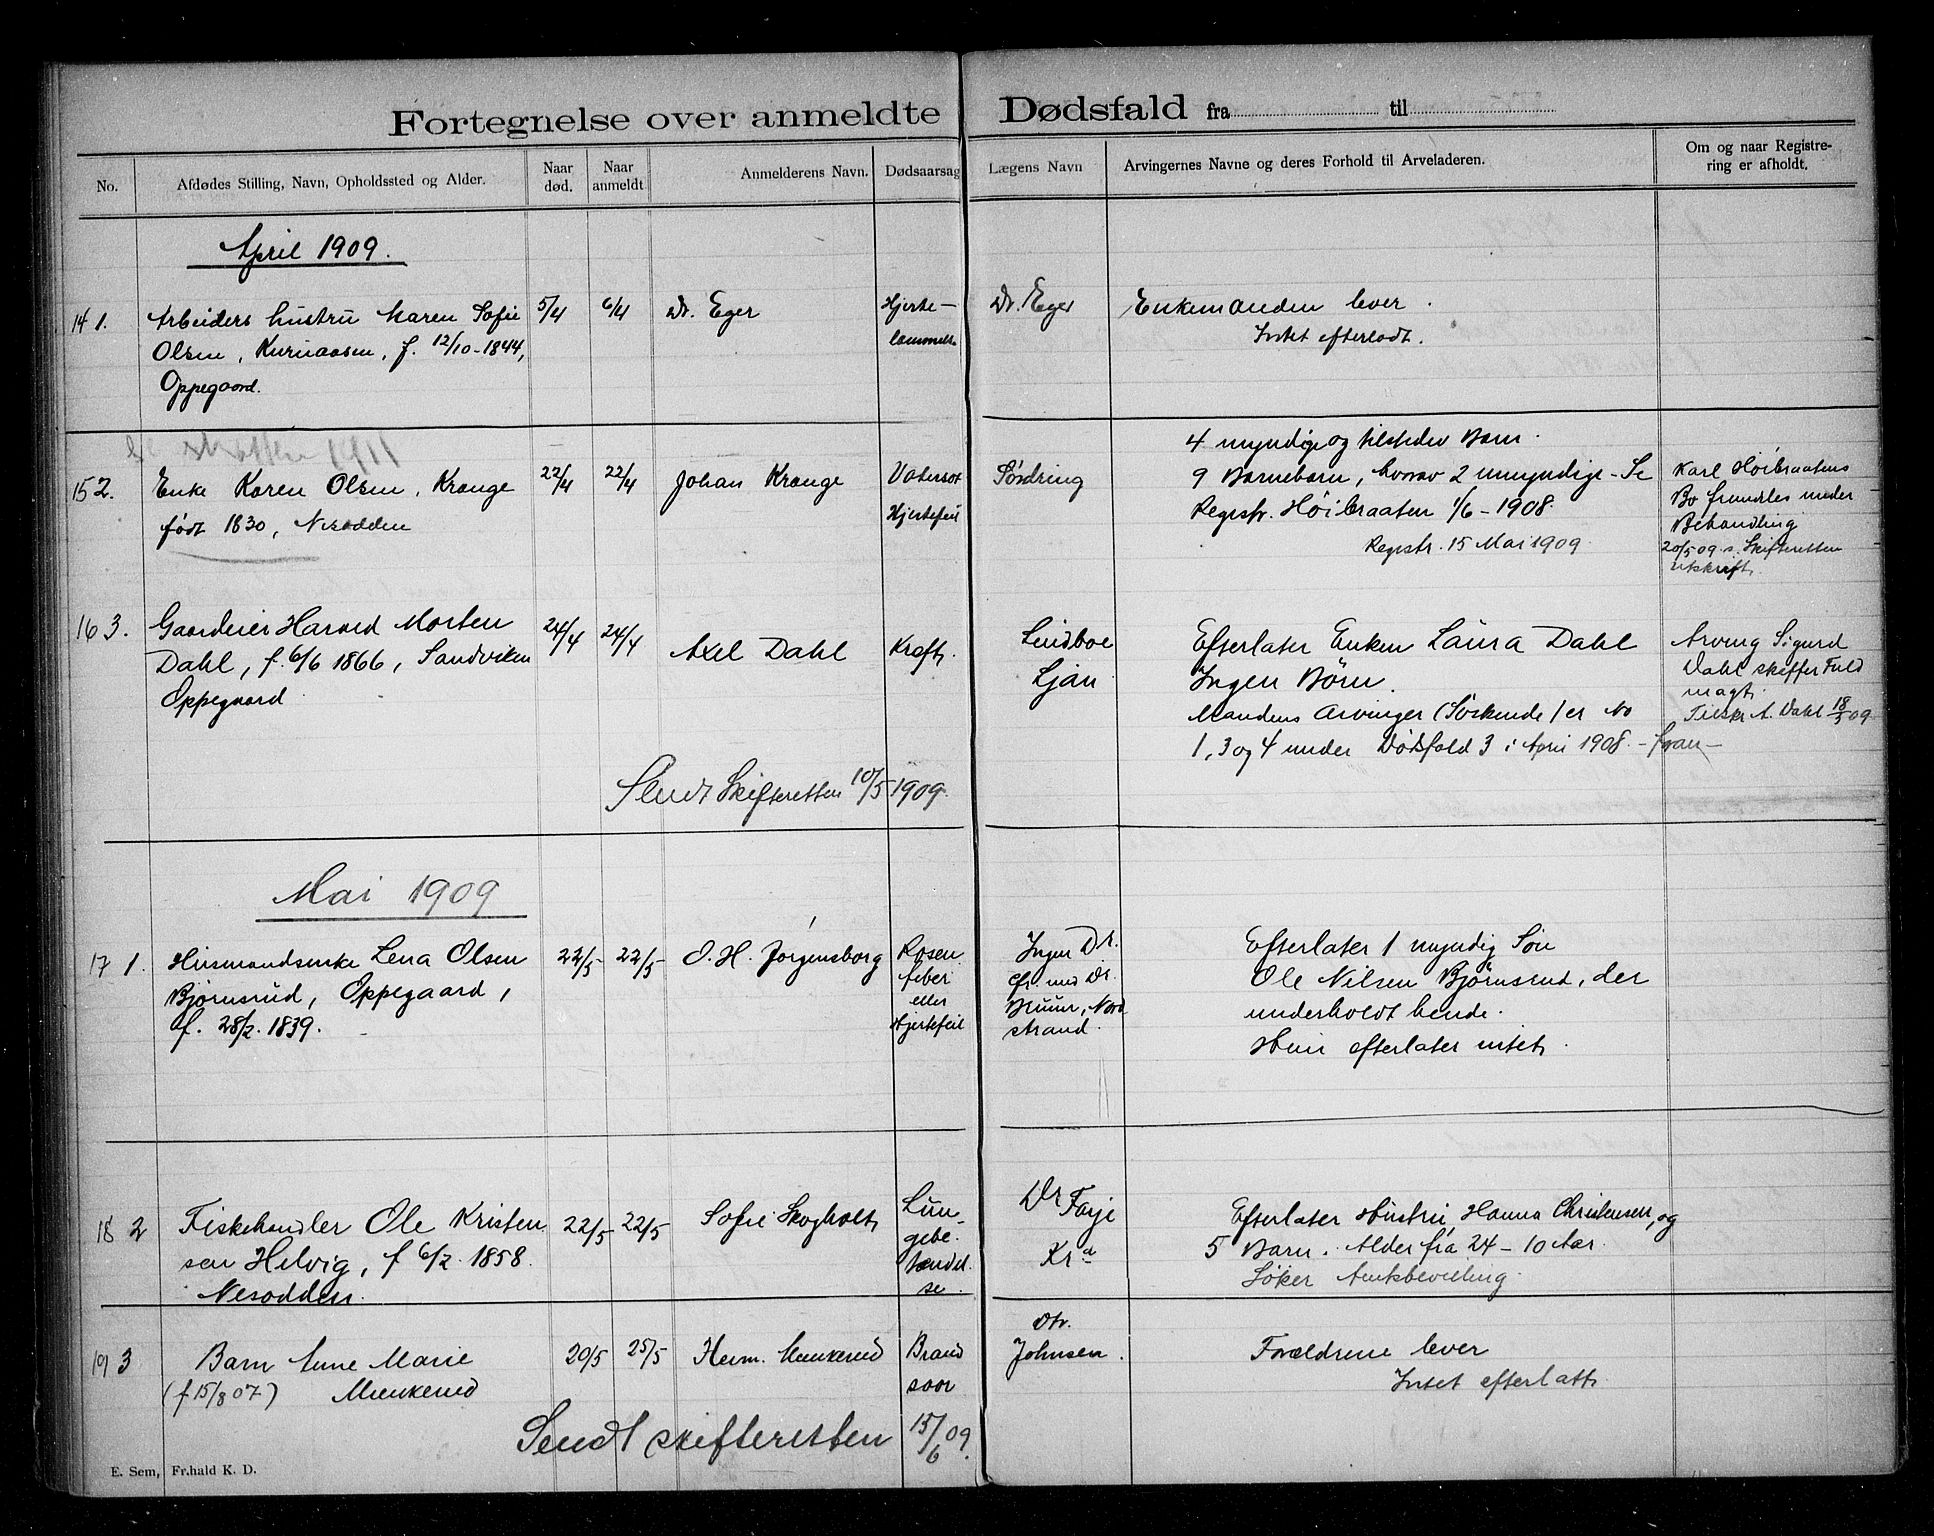 Fortegnelse over anmeldte Dødsfald fra til
No.
Afdødes Stilling, Navn, Opholdssted og Alder.
Naar død.
Naar anmeldt
Anmelderens Navn.
Dødsaarsag
Lægens Navn
Arvingernes Navne og deres Forhold til Arveladeren.
Om og naar Registre-
ring er afholdt.
April 1909.
14 1.
Arbeiders hustru Maren Sofie
Olsen, f. 12/10-1844,
Oppegaard.
5/4
6/4
Dr. Eger
Hjerte-
lammelse
Dr. Eger
Enkemanden lever.
Intet efterladt.
15 2.
Enke Karen Olsen, Krange
født 1830, Nesodden
22/4
22/4
Johan Krange
Vatersot
Hjertefeil
Søndring
4 myndige og tilstedev Barn.
9 Barnebarn, hvorav 2 umyndige - Se
Registr. Høibraaten 1/6-1908.
Registr. 15 Mai 1909.
Karl Høibraatens
Bo fremdeles under
Behandling
20/5 09 s. Skifteretten
utskrift.
16 3.
Gaardeier Harald Morten
Dahl, f. 6/6 1866, Sandviken
Oppegaard
24/4
24/4
Axel Dahl
Kræft.
Lindboe
Ljan
Efterlater Enken Laura Dahl
Ingen Børn.
Mandens Arvinger (Søskende) er No
1, 3 og 4 under Dødsfald 3 i April 1908. -
Arving Sigurd
Dahl skaffer Fuld
magt.
Tilskr A. Dahl 18/5 09
Sendt Skifteretten 10/5 1909.
Mai 1909
17 1.
Husmandsenke Lena Olsen
Bjørnsrud, Oppegaard,
f. 28/2. 1839.
22/5
22/5
O. H. Jørgensborg
Rosen
feber
eller
Hjertefeil
Ingen Dr.
cfr. med Dr.
Bruun, Nord
strand.
Efterlater 1 myndig Søn
Ole Nilsen Bjørnsrud, der
underholdt hende.
Hun efterlater intet.
18 2
Fiskehandler Ole Kristen
sen Helvig, f 6/2. 1858.
Nesodden.
22/5
22/5
Sofie Skogholt
Lun-
gebe-
tændel-
se.
Dr Faye
Kra
Efterlater Hustru, Hanna Christensen, og
5 Barn. Alder fra 24-10 Aar.
Søker Amtsbevilling.
19 3
Barn Anne Marie
(f 15/8 07) Munkerud
20/5
25/5
Herm. Munkerud
Brand
saar
Dr.
Johnsen.
Forældrene lever
Intet efterlatt.
Sendt skifteretten 15/6 09.
E. Sem, Fr.hald K. D.